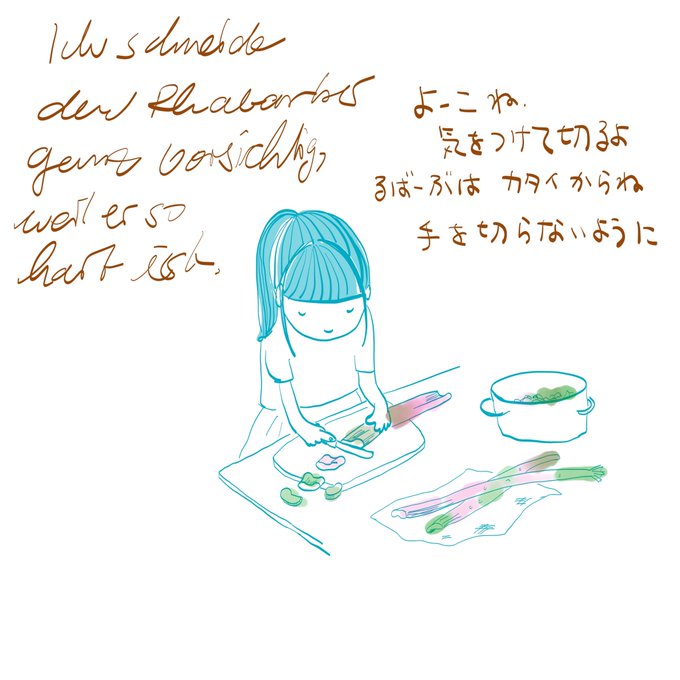 Ich schneide
den Rhabarber
ganz vorsichtig,
weil er so
hart ist.
よーこ ね.
気をつけて切るよ
るばーぶは カタイからね
手を切らないように